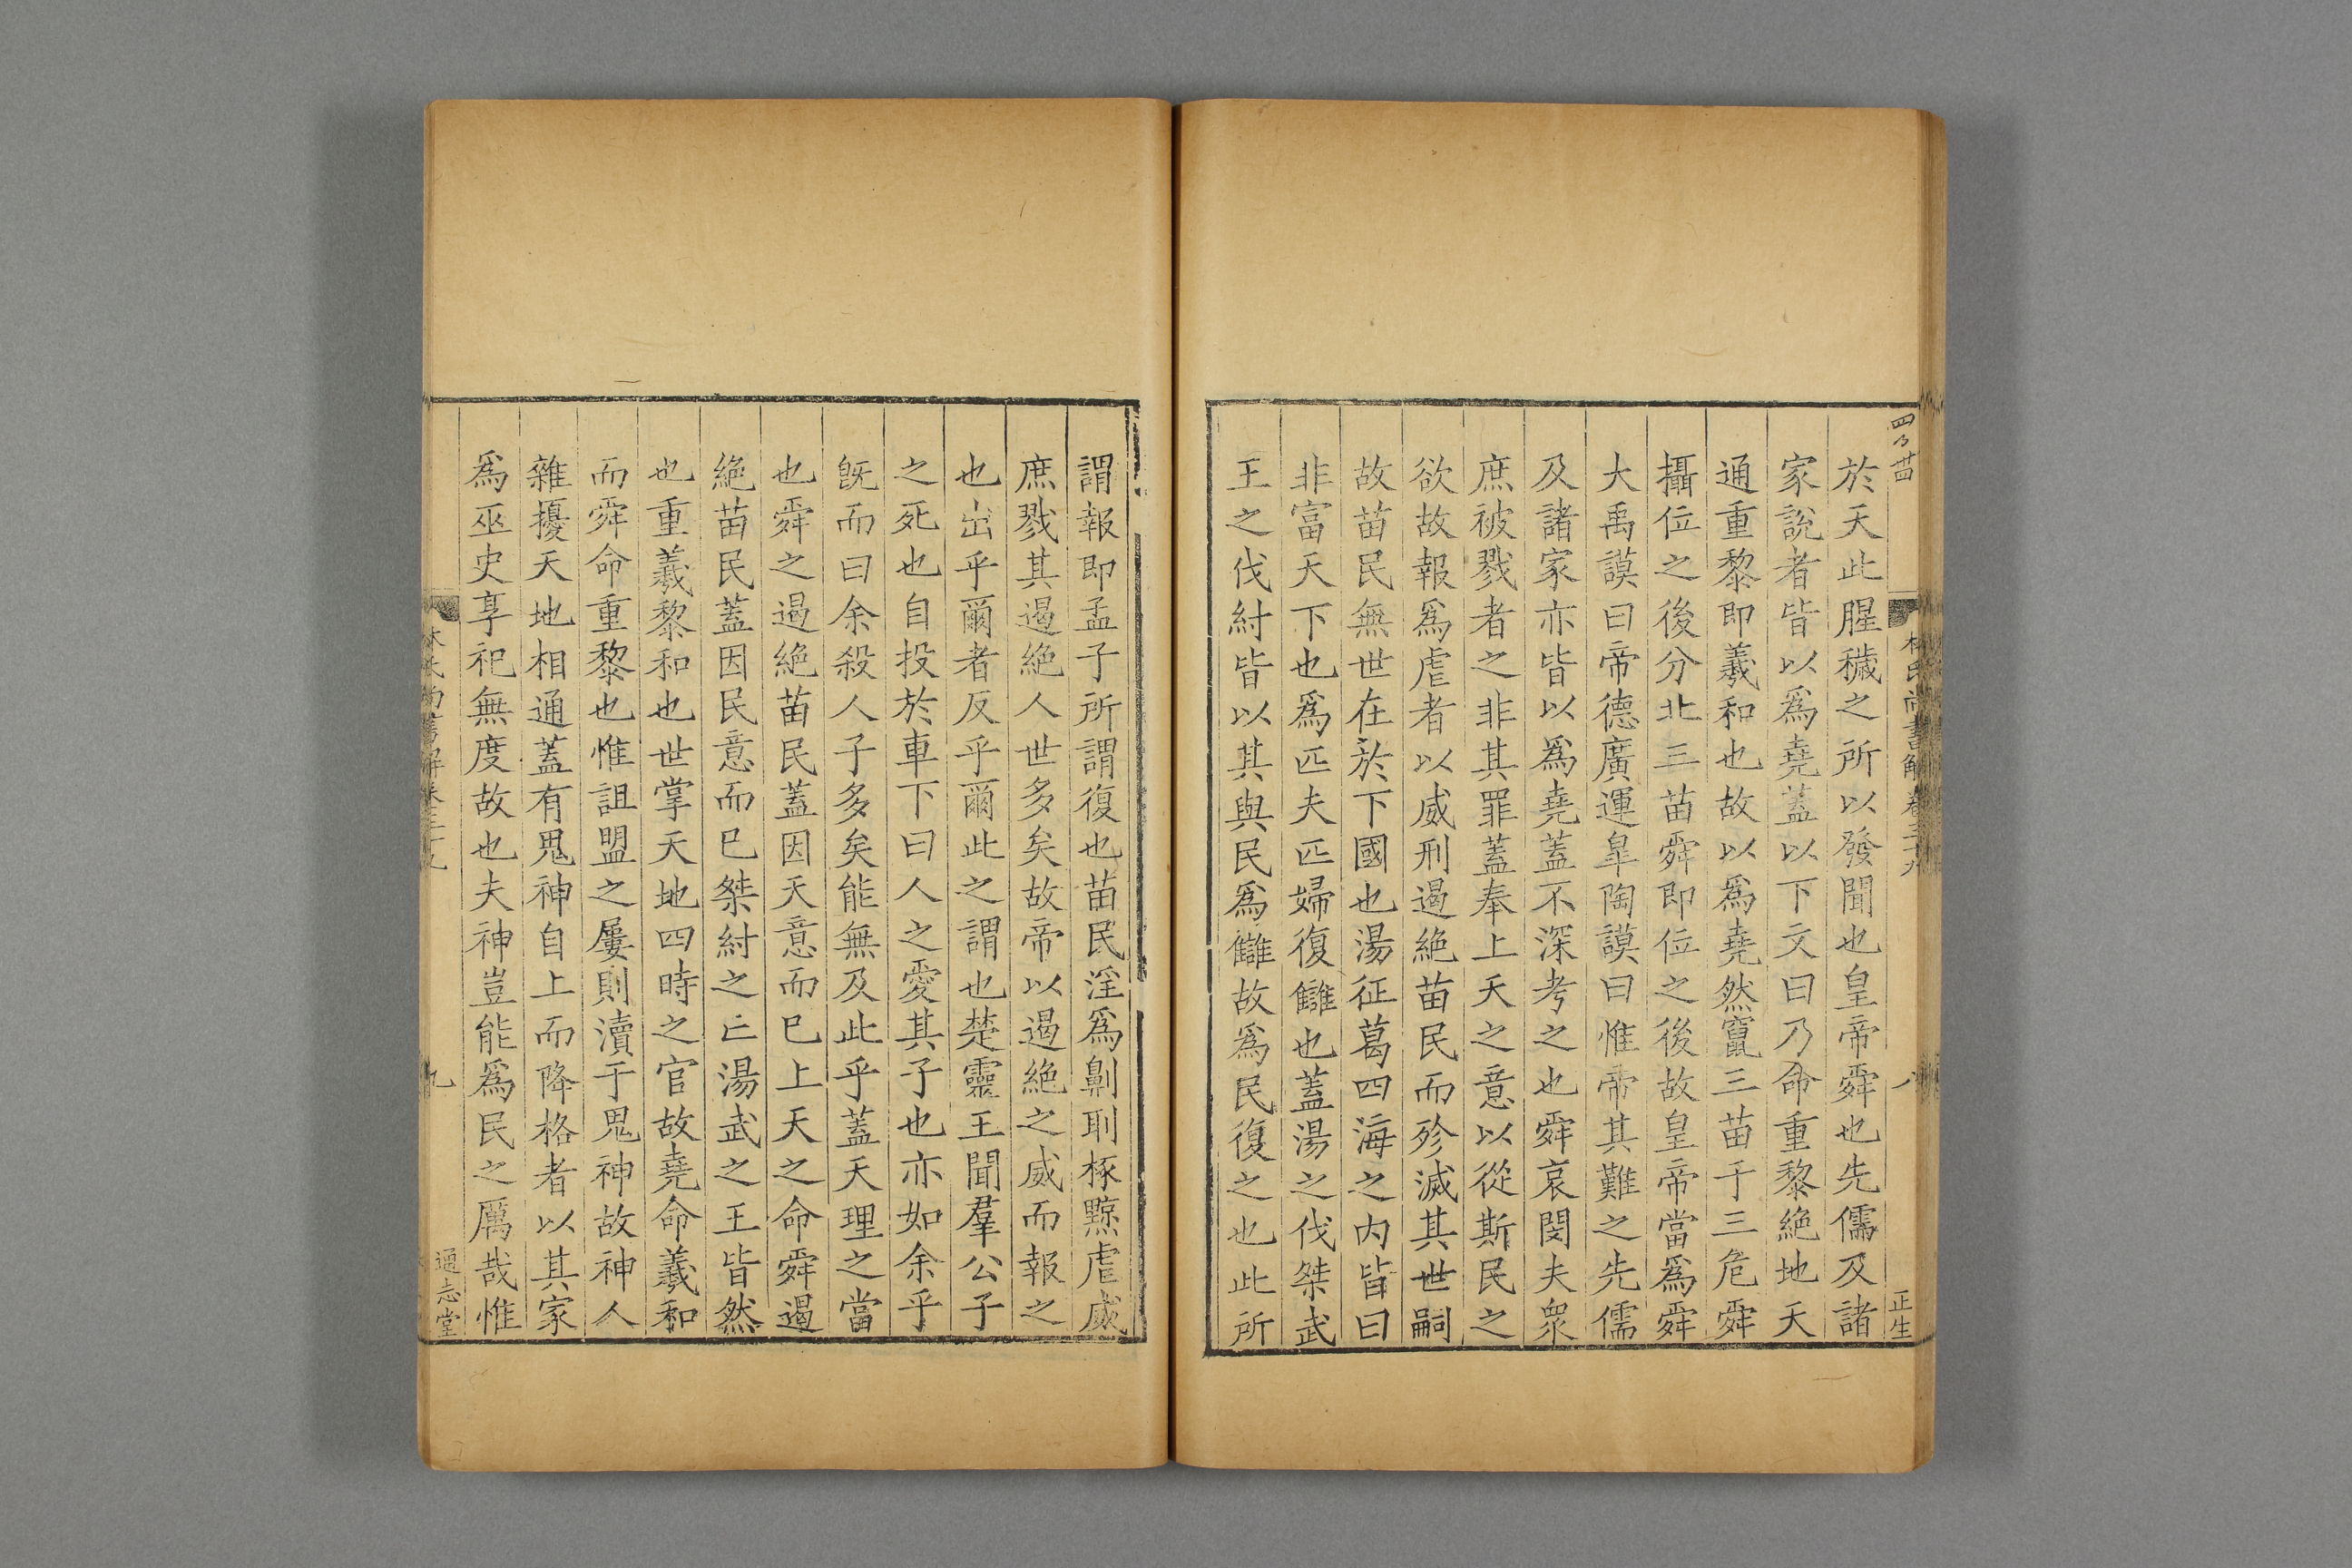 四百廿四
林氏尚書解 卷三十九
八
正生
於天此腥穢之所以發聞也皇帝舜也先儒及諸
家說者皆以爲堯蓋以下文曰乃命重黎絶地天
通重黎即羲和也故以爲堯然竄三苗于三危舜
攝位之後分北三苗舜即位之後故皇帝當爲舜
大禹謨曰帝德廣運臯陶謨曰惟帝其難之先儒
及諸家亦皆以爲堯蓋不深考之也舜哀閔夫衆
庶被戮者之非其罪蓋奉上天之意以從斯民之
欲故報爲虐者以威刑遏絶苗民而殄滅其世嗣
故苗民無世在於下國也湯征葛四海之内皆曰
非富天下也爲匹夫匹婦復讎也蓋湯之伐桀武
王之伐紂皆以其與民爲讎故爲民復之也此所
謂報即孟子所謂復也苗民淫爲劓刵椓黥虐威
庶戮其遏絶人世多矣故帝以遏絶之威而報之
也出乎爾者反乎爾此之謂也楚靈王聞羣公子
之死也自投於車下曰人之愛其子也亦如余乎
旣而曰余殺人子多矣能無及此乎蓋天理之當
也舜之遏絶苗民蓋因天意而已上天之命舜遏
絶苗民蓋因民意而已桀紂之亡湯武之王皆然
也重羲黎和也世掌天地四時之官故堯命羲和
而舜命重黎也惟詛盟之屢則瀆于鬼神故神人
雜擾天地相通蓋有鬼神自上而降格者以其家
爲巫史享祀無度故也夫神豈能爲民之厲哉惟
林氏尚書解 卷三十九
九
通志堂